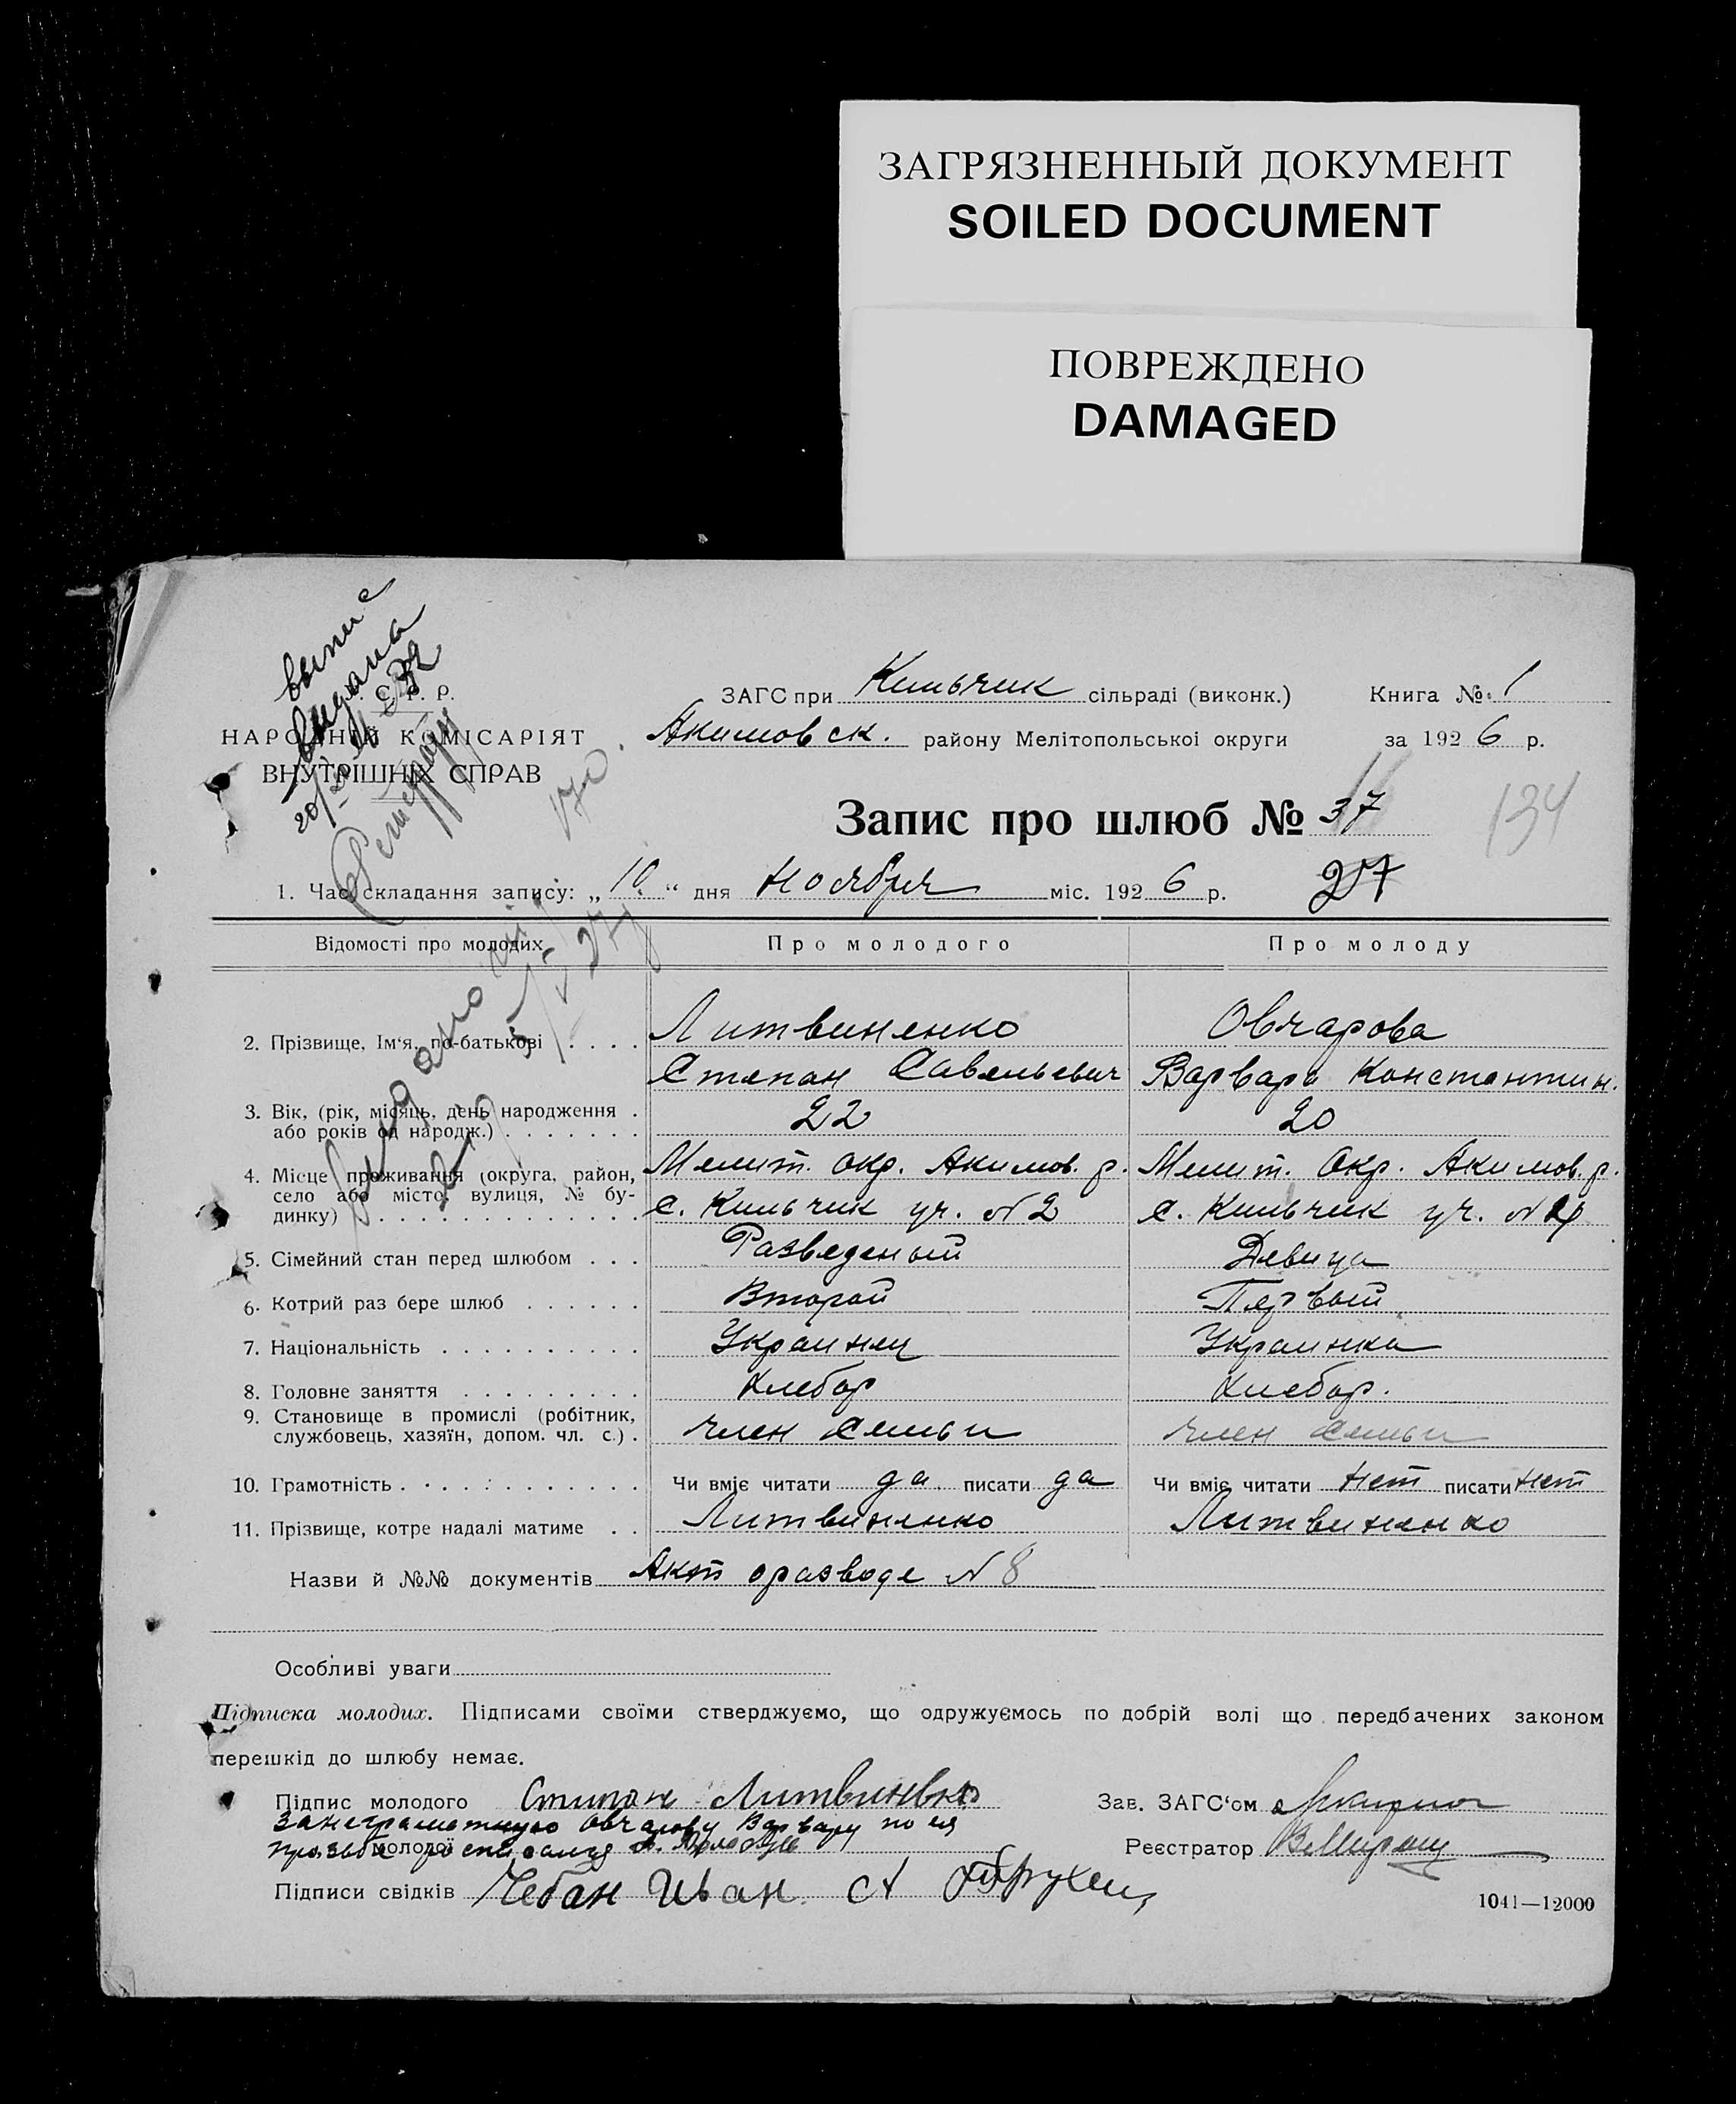 ЗАГРЯЗНЕННЫЙ ДОКУМЕНТ
SOILED DOCUMENT
ПОВРЕЖДЕНО
DAMAGED
выпис
видана
НАРОДНІЙ КОМІСАРІЯТ
ВНУТРІШНІХ СПРАВ
ЗАГС при Кильчик сільраді (виконк.) Книга № 1
Акимовск. району Мелітопольської округи за 1926 р.
Запис про шлюб № 37
134
27
1. Час складання запису: „10“ дня Ноября міс. 1926 р.
Відомості про молодих Про молодого Про молоду
2. Прізвище, Ім‘я, по-батькові . . . . Литвиненко Овчарова
Степан Савельевич Варвара Константин.
3. Вік, (рік, місяць, день народження . 22 20
або років од народж.) . . . . . . .
4. Місце проживання (округа, район, Мелит. Окр. Акимов. р. Мелит. Окр. Акимов. р.
село або місто, вулиця, № бу-
динку) . . . . . . . . . . . . . с. Кильчик уч. №2 с. Кильчик уч. №
5. Сімейний стан перед шлюбом . . . Разведеный Девица
6. Котрий раз бере шлюб . . . . . . Второй Первый
7. Національність . . . . . . . . . . Украинец Украинка
8. Головне заняття . . . . . . . . . Хлебор Хлебор.
9. Становище в промислі (робітник,
службовець, хазяїн, допом. чл. с.) . член семьи член семьи
10. Грамотність . . . . . . . . . . . . Чи вміє читати да писати да Чи вміє читати нет писати нет
11. Прізвище, котре надалі матиме . . Литвиненко Литвиненко
Назви й №№ документів Акт о разводе № 8
Особливі уваги
Підписка молодих. Підписами своїми стверджуємо, що одружуємось по добрій волі що передбачених законом
перешкід до шлюбу немає.
Підпис молодого Стипан Литвиненко Зав. ЗАГС‘ом
За неграмотную Овчарову Варвару по ея
прозьбе молодої росписался
Реєстратор
Підписи свідків Чебан Иван
1041—12000